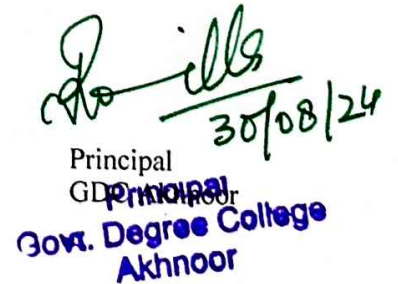 30/08/24
Principal
GDC Akhnoor
Principal
Govt. Degree College
Akhnoor